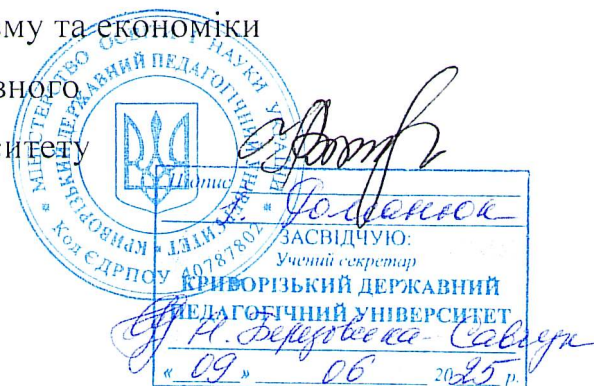 зму та економіки
вного
ситету
МІНІСТЕРСТВО ОСВІТИ І НАУКИ УКРАЇНИ
КРИВОРІЗЬКИЙ ДЕРЖАВНИЙ ПЕДАГОГІЧНИЙ УНІВЕРСИТЕТ
Код ЄДРПОУ 40787802
Підпис
ЗАСВІДЧУЮ:
Учений секретар
КРИВОРІЗЬКИЙ ДЕРЖАВНИЙ
ПЕДАГОГІЧНИЙ УНІВЕРСИТЕТ
Н. Березовська-Савчук
« 09 » 06 2025 р.